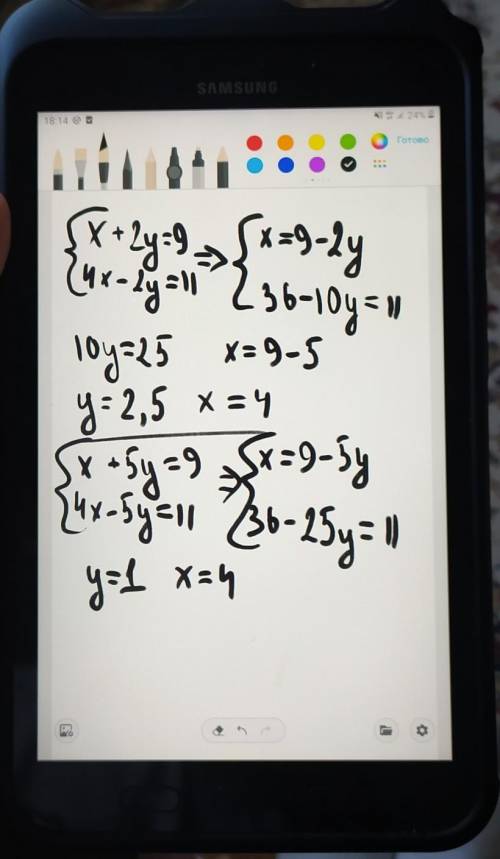 SAMSUNG
18:14 24%
Готово
{x+2y=9 => {x=9-2y
{4x-2y=11 {36-10y=11
10y=25 x=9-5
y=2,5 x=4
{x+5y=9 => {x=9-5y
{4x-5y=11 {36-25y=11
y=1 x=4